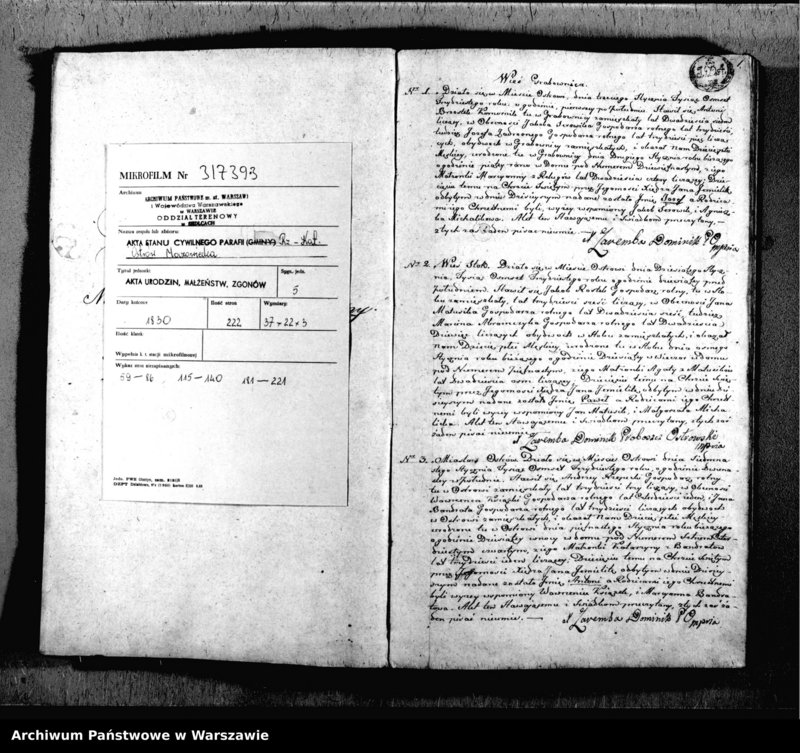 MIKROFILM Nr 317393
Archiwum
ARCHIWUM PAŃSTWOWE m. st. WARSZAWY
i Województwa Warszawskiego
w WARSZAWIE
ODDZIAŁ TERENOWY
w SIEDLCACH
Nazwa zespołu lub zbioru:
AKTA STANU CYWILNEGO PARAFII (GMINY) Rz-Kat.
Ostrów Mazowiecka
Tytuł jednostki
AKTA URODZIN, MAŁŻEŃSTW, ZGONÓW
Sygn. jedn.
5
Daty krańcowe
1830
Ilość stron
222
Wymiary:
37 × 22 × 3
Ilość klatek
Wypełnia k
Wykaz stron niezapisanych:
59 — 86 115 — 140 181 — 221
1
Wieś Grabownica.
Nro 1. Działo się w Mieście Ostrowi, dnia trzeciego Stycznia Tysiąc Ośmset
trzydziestego roku, o godzinie pierwszej po południu Stawił się Antoni
Komornik tu w Grabownicy zamieszkały lat Dwadzieścia siedm
liczący, w Obecności Jakóba Gospodarza rolnego lat trzydzieści,
tudzież Józefa Gospodarza rolnego lat trzydzieści pięć licząc
cych, obydwóch w Grabownicy zamieszkałych, i okazał nam Dziecię płci
Męskiej, urodzone tu w Grabownicy dnia Drugiego Stycznia roku bieżącego
o godzinie piątej rano w Domu pod Numerem
Małżonki Maryanny lat Dwadzieścia cztery liczącej; Dzie-
cięciu temu na Chrzcie Świętym przez Jegomości Xiędza Jana
odbytym w dniu dzisiejszym nadane zostało Imie Józef a Rodzica-
mi jego Chrzestnemi byli, wyżej wspomniony Jakób i
Akt ten Stawającemu i Świadkom przeczytany,
z tych zaś żaden pisać nieumie. —
X Zaremba Dominik P O mppria
Nro 2. Wieś Stok. Działo się w Mieście Ostrowi dnia Dziewiątego Stycz-
nia, Tysiąc Ośmset Trzydziestego roku o godzinie dziewiątej przed
południem. Stawił się Jakób Gospodarz rolny, tu w Sto-
ku zamieszkały, lat trzydzieści sześć liczący, w Obecności Jana
Matusika Gospodarza rolnego lat Dwadzieścia sześć, tudzież
Marcina Gospodarza rolnego lat Dwadzieścia
Dziewięć liczących obydwóch w Stoku zamieszkałych, i okazał
nam Dziecię płci Męskiej, urodzone tu w Stoku dnia ósmego
Stycznia roku bieżącego o godzinie Dziewiątej wieczór w Domu
pod Numerem Piętnastym, z jego Małżonki Agaty z Matusików
lat dwadzieścia ośm liczącej. Dziecięciu temu na Chrzcie Świę-
tym przez Jegomości Xiędza Jana odbytym w dniu dzi-
siejszym nadane zostało Imie Paweł a Rodzicami jego Chrzest-
nemi byli wyżej wspomniony Jan Matusik, i Małgorzata
Akt ten Stawającemu i Świadkom przeczytany, z tych zaś
żaden pisać nieumie
X Zaremba Dominik Proboszcz Ostrowski mppria
Nro 3. Miasto Ostrów Działo się w Mieście Ostrowi dnia Siedmna-
stego Stycznia Tysiąc Ośmset Trzydziestego roku, o godzinie
z południa. Stawił się Andrzej Gospodarz rolny
tu w Ostrowi zamieszkały lat trzydzieści trzy liczący, w Obecności
Wawrzeńca Gospodarza rolnego lat Czterdzieści jeden, i Jana
Gospodarza rolnego lat trzydzieści liczących obydwóch
w Ostrowi zamieszkałych, i okazał Nam Dziecię płci Męskiej
urodzone tu w Ostrowi dnia piętnastego Stycznia roku bieżącego
o godzinie Dziewiątej w nocy w domu pod Numerem
czwartym, z jego Małżonki Katarzyny z
lat trzydzieści jeden liczącej; Dziecięciu temu na Chrzcie Świętym
przez Jegomości Xiędza Jana odbytym w dniu Dzisiej-
szym nadane zostało Imie Antoni a Rodzicami jego Chrzestnemi
byli wyżej wspomniony Wawrzeniec i Maryanna
Akt ten Stawającemu i Świadkom przeczytany, z tych zaś ża-
den pisać nieumie. —
X Zaremba Dominik P O mppria
Archiwum Państwowe w Warszawie